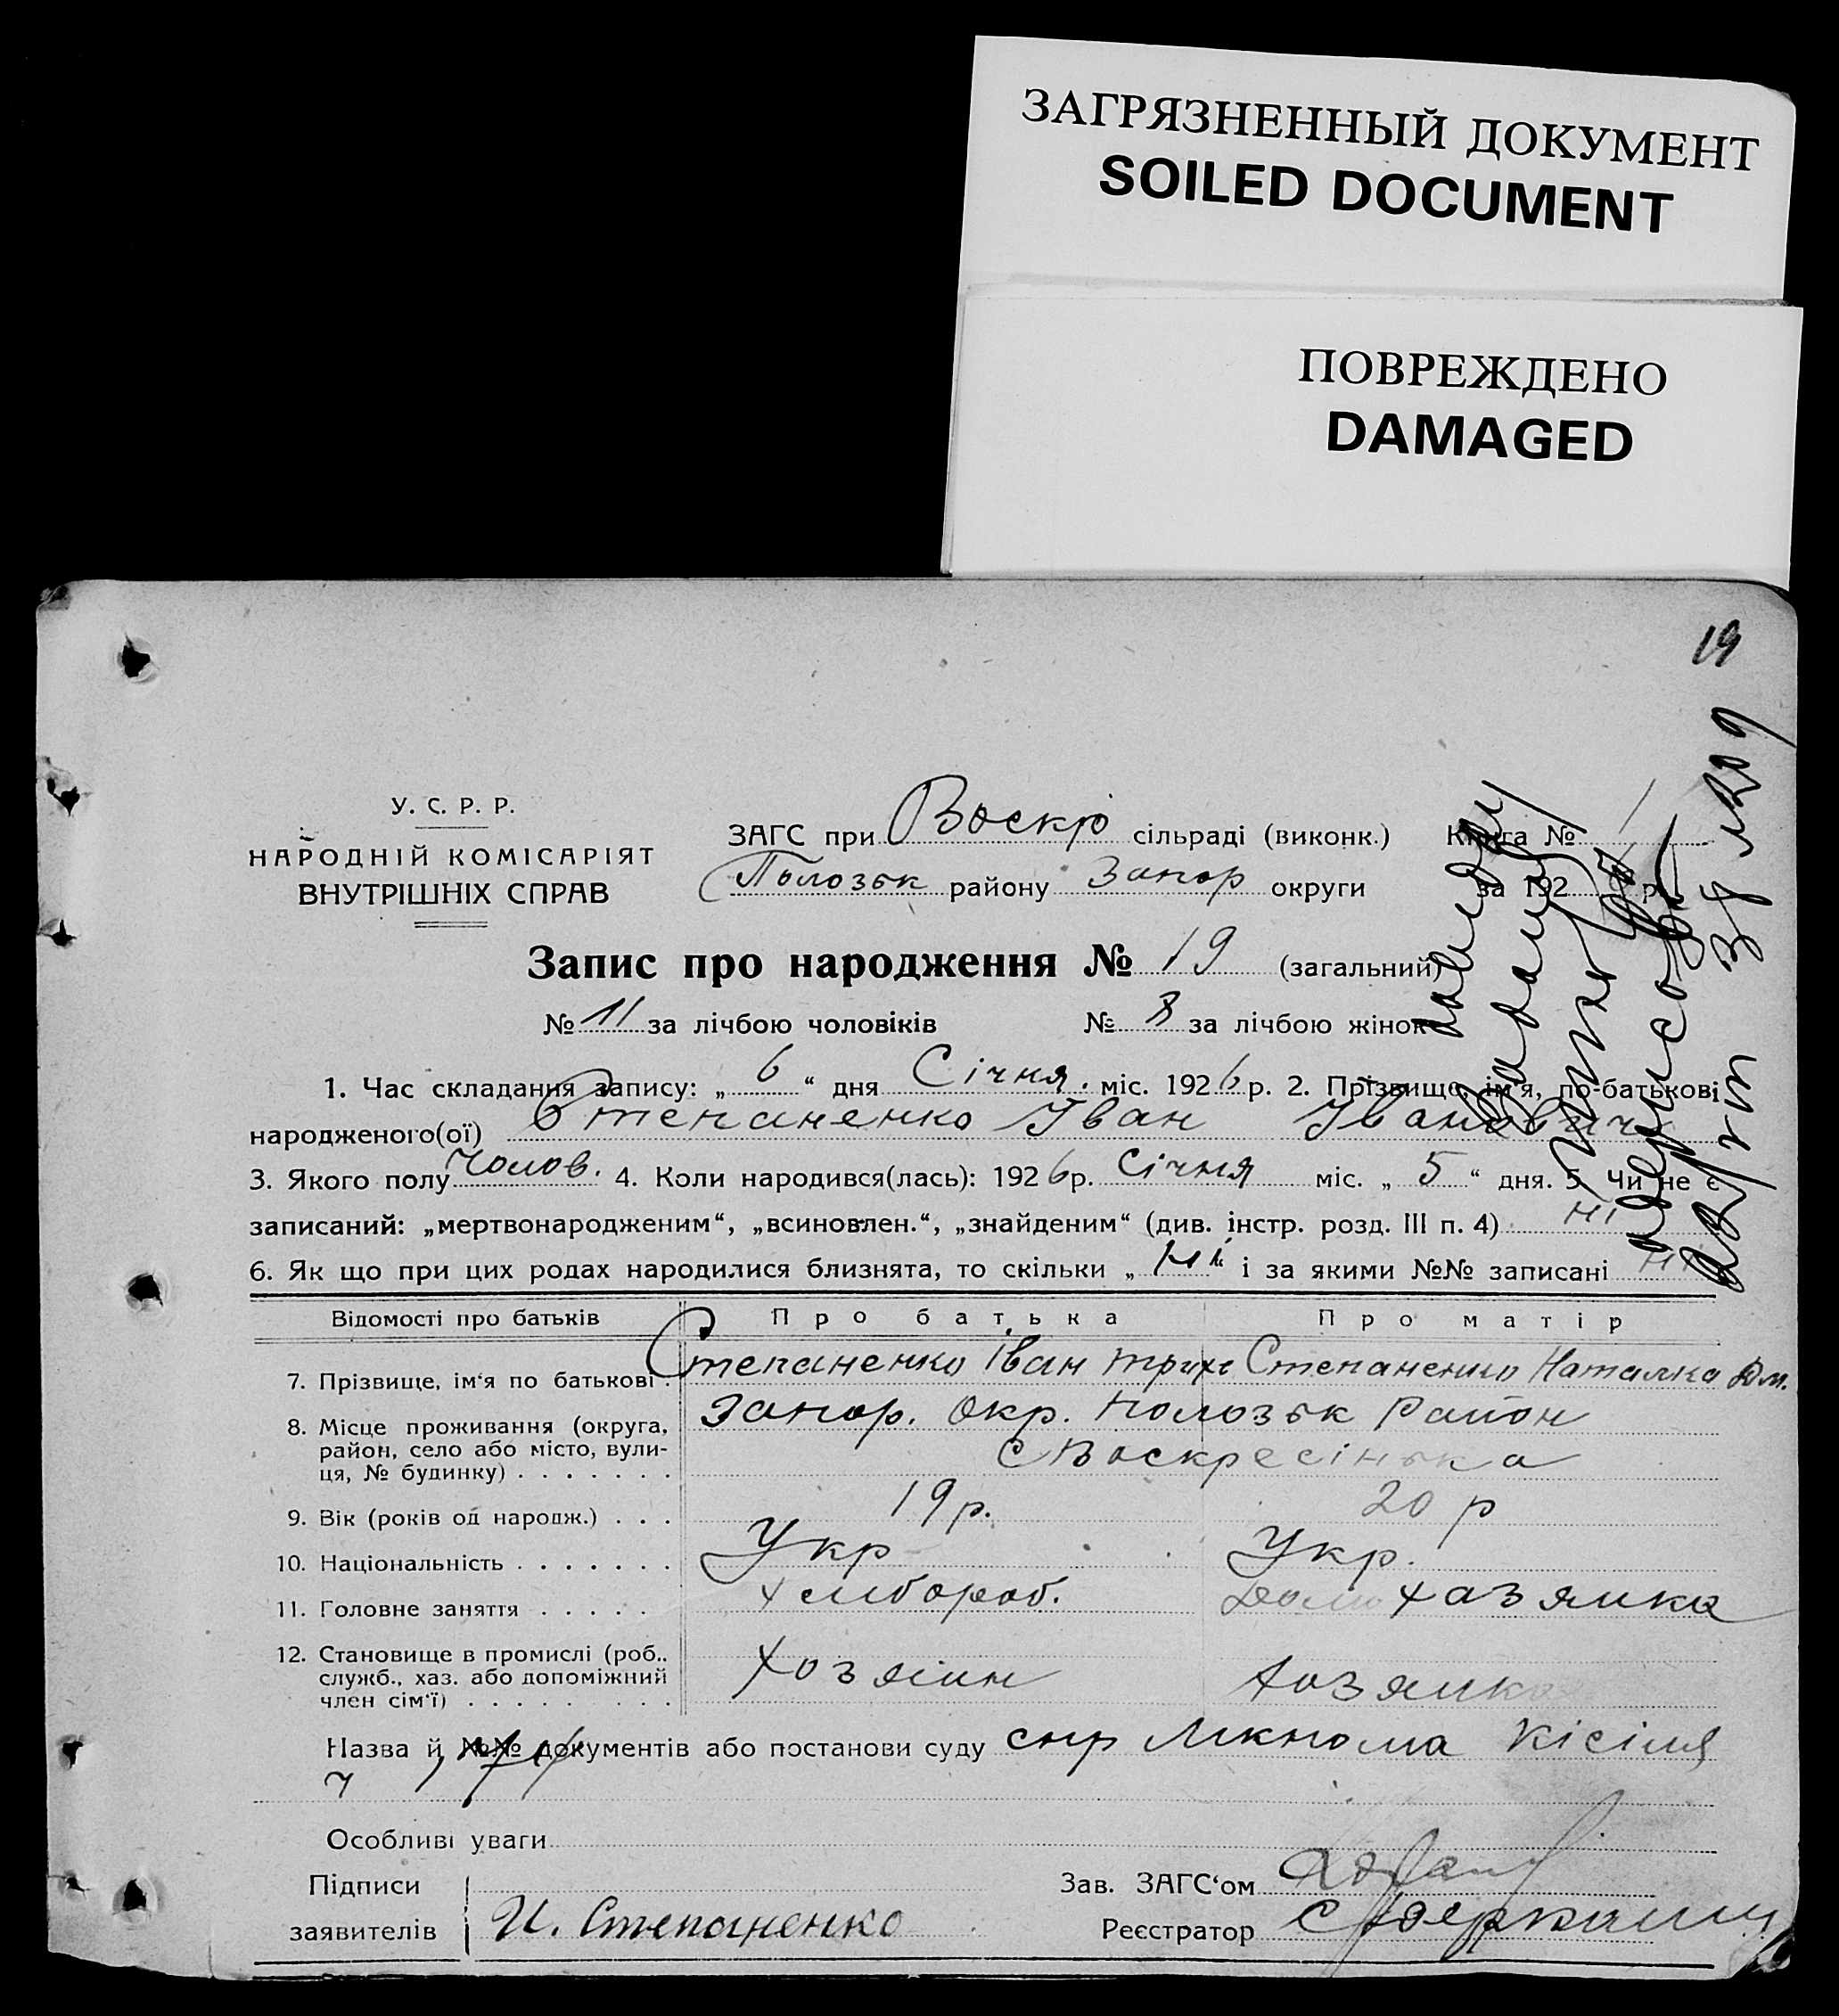 ЗАГРЯЗНЕННЫЙ ДОКУМЕНТ
SOILED DOCUMENT
ПОВРЕЖДЕНО
DAMAGED
19
У. С. Р. Р.
НАРОДНІЙ КОМІСАРІЯТ
ВНУТРІШНІХ СПРАВ
ЗАГС при Воскр сільраді (виконк.) Книга № 1
Пологзьк району Запор округи за 192 р.
Запис про народження № 19 (загальний)
№ 11 за лічбою чоловіків № 8 за лічбою жінок
1. Час складання запису: „ 6 “ дня Січня. міс. 1926 р. 2. Прізвище, ім'я, по-батькові
народженого(ої) Степаненко Іван Іванович
3. Якого полу чолов. 4. Коли народився(лась): 1926 р. Січня міс. „ 5 “ дня. 5 Чи не є
записаний: „мертвонародженим“, „всиновлен.“, „знайденим“ (див. інстр. розд. III п. 4) ні
6. Як що при цих родах народилися близнята, то скільки „ ні “ і за якими №№ записані ні
Відомості про батьків Про батька Про матір
7. Прізвище, ім'я по батькові . Степаненко Іван Степаненко Наталка Дм.
8. Місце проживання (округа, район, село або місто, вули-ця, № будинку) . . . . . . . Запор. Окр. Пологзьк Район
с Воскресінька
9. Вік (років од народж.) . . . 19 р. 20 р
10. Національність . . . . . . . Укр Укр.
11. Головне заняття . . . . . хлібороб. Дом хазяйка
12. Становище в промислі (роб., служб., хаз. або допоміжний член сім'ї) . . . . . . . . хозяїн хозяйка
Назва й №№ документів або постанови суду Кісіля
Особливі уваги
Підписи
заявителів И. Степаненко
Зав. ЗАГС'ом
Реєстратор